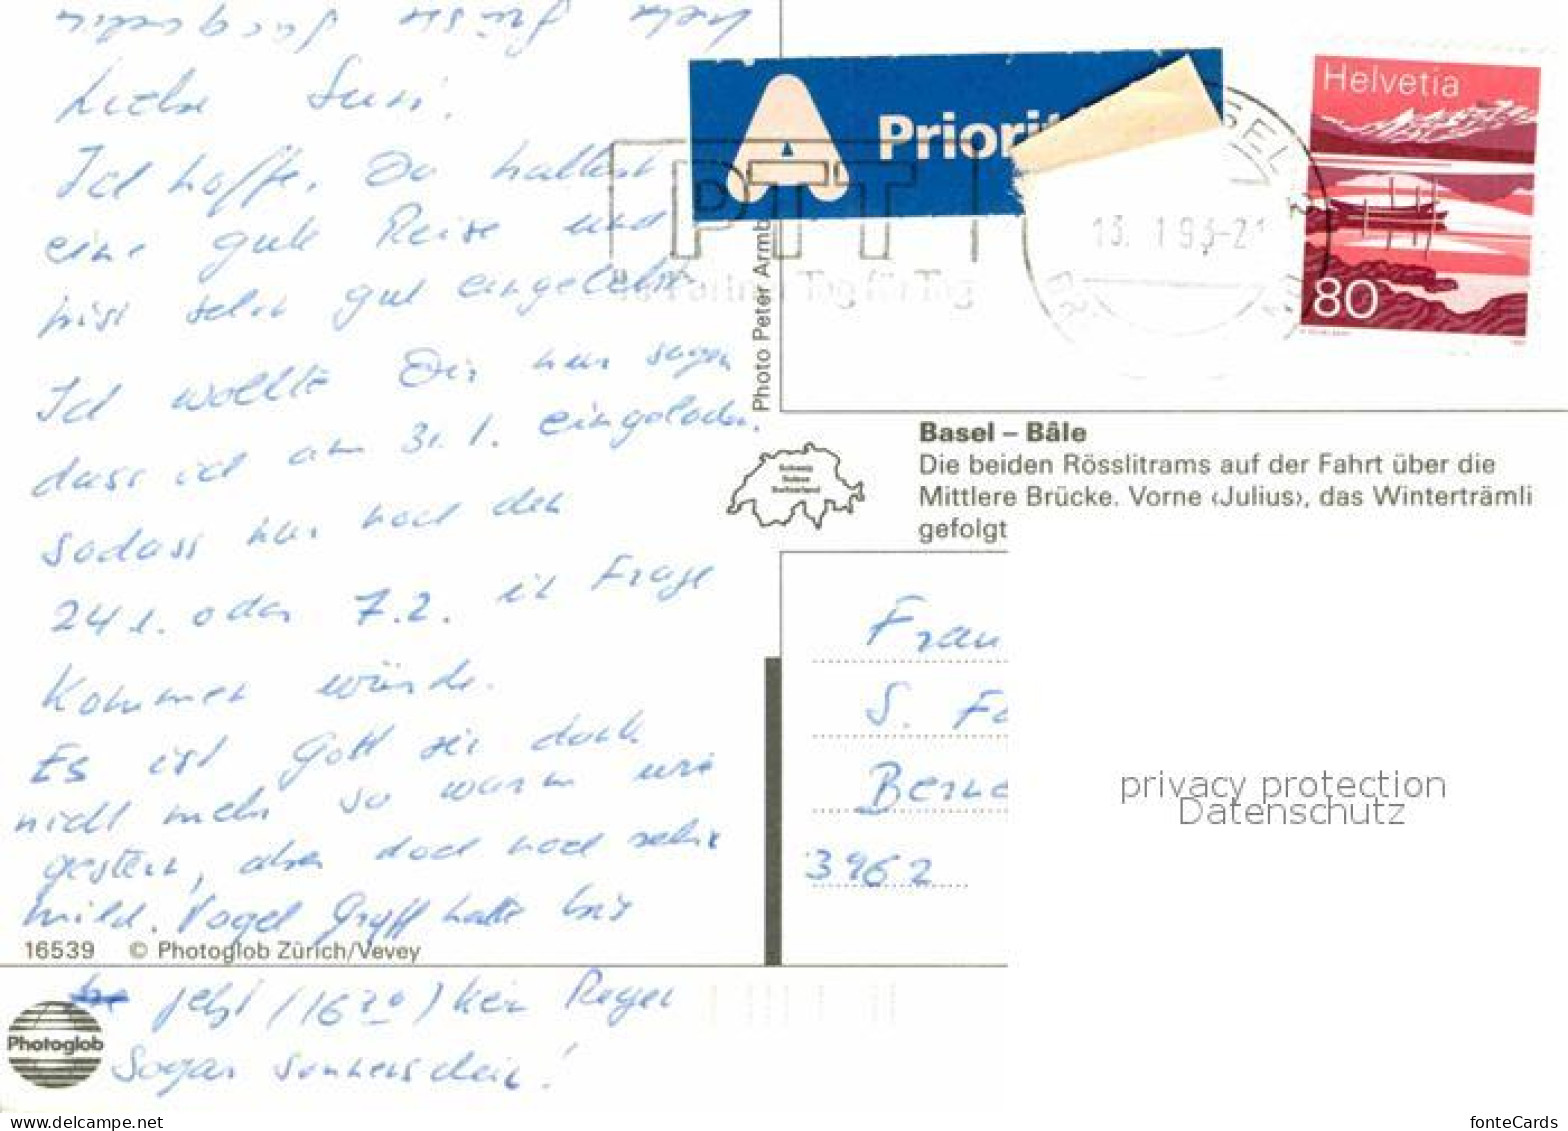 Liebe Susi.
Ich hoffe, Du hattest
eine gute Reise und
bist sehr gut eingelebt.
Ich wollte Dir nur sagen
dass ich am 31.1. eingeladen,
sodass nur noch der
24.1. oder 7.2. in Frage
kommen würde.
Es ist Gott sei dank
nicht mehr so warm wie
gestern, aber doch noch sehr
mild. Vogel Gryff hatte bis
16539 © Photoglob Zürich/Vevey
jetzt (16 30) kein Regen
Sogar sonnenschein!
Photoglob
Photo Peter Armb
A Priorit
PTT
Tag für Tag
SEL
13. 1 93-21
Helvetia
80
Schweiz
Suisse
Switzerland
Basel – Bâle
Die beiden Rösslitrams auf der Fahrt über die
Mittlere Brücke. Vorne ‹Julius›, das Winterträmli
gefolgt
Frau
S. Fa
Berne
3962
privacy protection
Datenschutz
www.delcampe.net
fonteCards